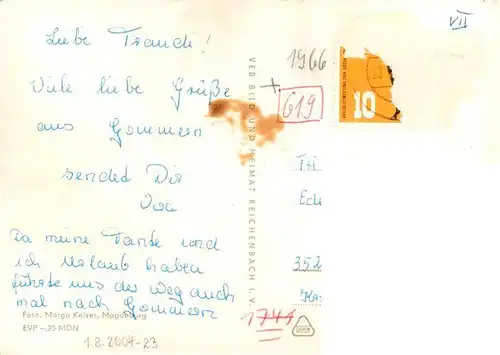 Liebe Traudi!
Viele liebe Grüße
aus Gommern
sendet Dir
Da meine Tante und
ich Urlaub haben
führte uns der Weg auch
mal nach Gommern
Foto: Margo Keiser, Magdeburg
EVP -,25 MDN
1.8.2004-23
VEB BILD UND HEIMAT REICHENBACH i. V.
1966
619
VII
10
Tri
Ede
352
1744